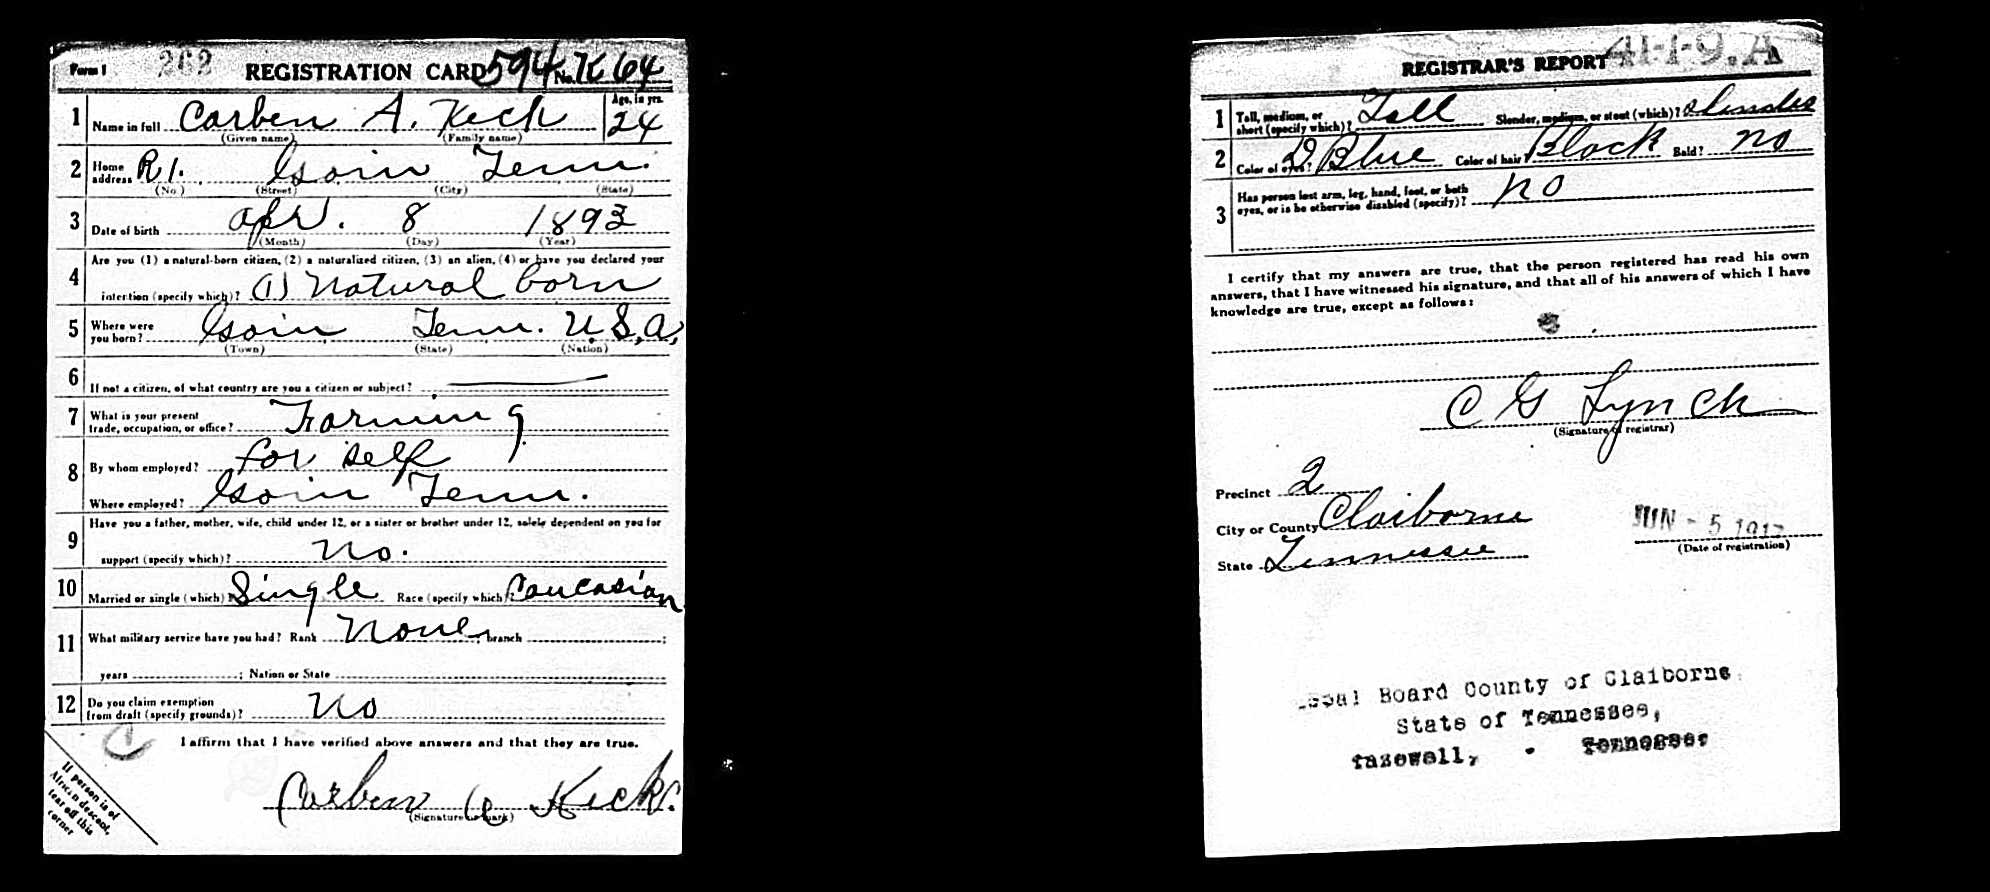 Form 1 262 REGISTRATION CARD 594 No. K 64
1 Name in full Carben A. Keck Age, in yrs. 24
(Given name) (Family name)
2 Home address R 1. Goin Tenn.
(No.) (Street) (City) (State)
3 Date of birth Apr. 8 1893
(Month) (Day) (Year)
4 Are you (1) a natural-born citizen, (2) a naturalized citizen, (3) an alien, (4) or have you declared your
intention (specify which)? (1) Natural born
5 Where were you born? Goin Tenn. U.S.A.
(Town) (State) (Nation)
6 If not a citizen, of what country are you a citizen or subject?
7 What is your present trade, occupation, or office? Farming
8 By whom employed? for self
Where employed? Goin Tenn.
9 Have you a father, mother, wife, child under 12, or a sister or brother under 12, solely dependent on you for
support (specify which)? No.
10 Married or single (which)? Single Race (specify which)? Caucasian
11 What military service have you had? Rank None branch ;
years ; Nation or State
12 Do you claim exemption from draft (specify grounds)? No
I affirm that I have verified above answers and that they are true.
Carben A Keck.
(Signature or mark)
If person is of
African descent,
tear off this
corner
REGISTRAR'S REPORT 41-1-9.A
1 Tall, medium, or short (specify which)? Tall Slender, medium, or stout (which)? Slender
2 Color of eyes? D. Blue Color of hair? Black Bald? No
3 Has person lost arm, leg, hand, foot, or both
eyes, or is he otherwise disabled (specify)? No
I certify that my answers are true, that the person registered has read his own
answers, that I have witnessed his signature, and that all of his answers of which I have
knowledge are true, except as follows:
C G Lynch
(Signature of registrar)
Precinct 2
City or County Claiborne
State Tennessee
JUN - 5 1917
(Date of registration)
Local Board County of Claiborne
State of Tennessee,
Tazewell, - Tennessee